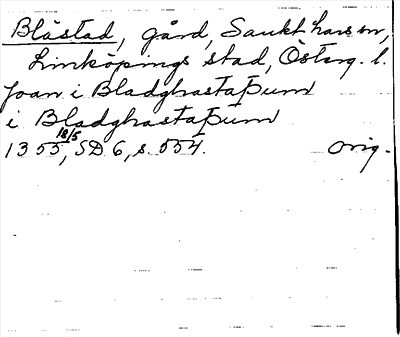 Blåstad, gård, Sankt Lars sn,
Linköpings stad, Österg. l.
Joan i Bladghastaþum
i Bladghastaþum
1355 18/5, SD 6, s. 554. orig.